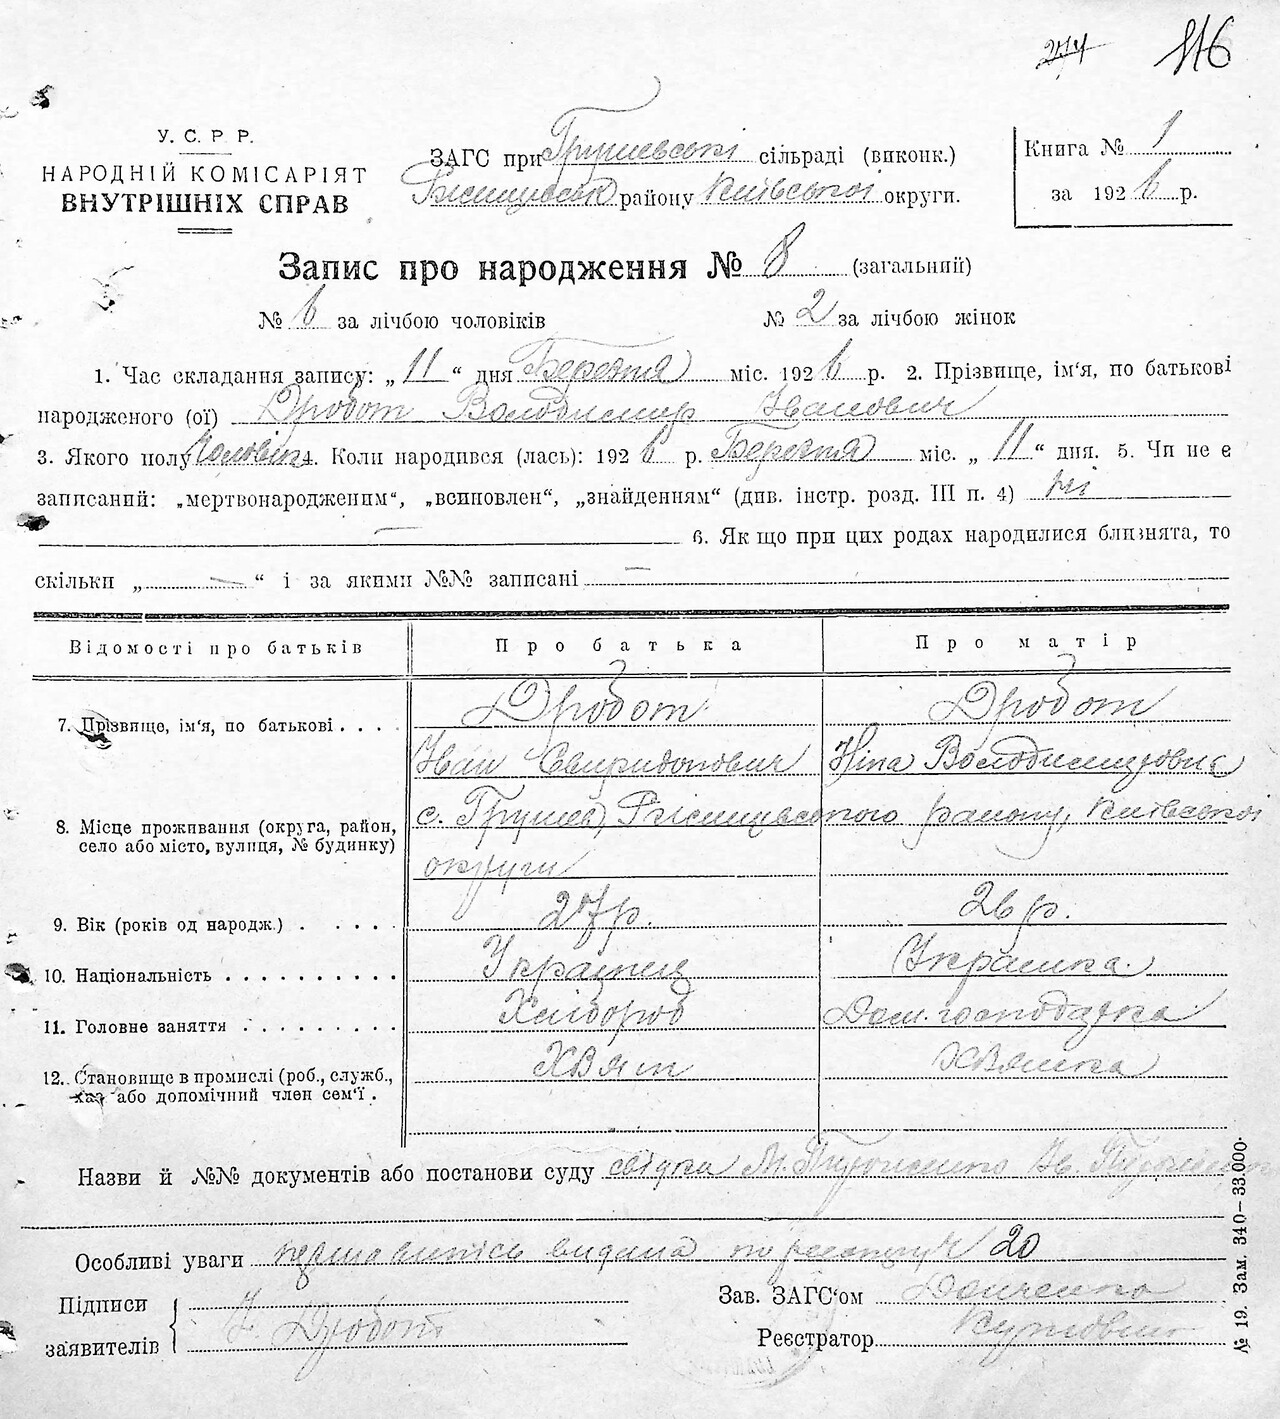 116
У. С. Р. Р.
НАРОДНІЙ КОМІСАРІЯТ
ВНУТРІШНІХ СПРАВ
ЗАГС при Грушевські сільраді (виконк.)
Ржищівськ району Київської округи.
Книга № 1
за 1926 р.
Запис про народження № 8 (загальний)
№ 6 за лічбою чоловіків № 2 за лічбою жінок
1. Час складання запису: „ 11 “ дня Березня міс. 1926 р. 2. Прізвище, ім'я, по батькові
народженого (ої) Дробот Володимир Іванович
3. Якого полу Чоловіч. 4. Коли народився (лась): 1926 р. Березня міс. „ 11 “ дня. 5. Чи не є
записаний: „мертвонародженим“, „всиновлен“, „знайденням“ (див. інстр. розд. III п. 4) ні
— 6. Як що при цих родах народилися близнята, то
скільки „ — “ і за якими №№ записані —
Відомості про батьків Про батька Про матір
7. Прізвище, ім'я, по батькові . . . . Дробот Дробот
Іван Свиридонович Ніна Володимировна
8. Місце проживання (округа, район, с. Грушев, Ржищівського району, Київської
село або місто, вулиця, № будинку) округи
9. Вік (років од народж.) . . . . . 27 р. 26 р.
10. Національність . . . . . . . . . . Українець Українка.
11. Головне заняття . . . . . . . . . Хлібороб Дом. господарка
12. Становище в промислі (роб., служб., ХВят ХВянка
хаз або допомічний член сем'ї .
Назви й №№ документів або постанови суду свідки М. Ів.
Особливі уваги перша випись видана по реєстру № 20
Підписи
заявителів
І. Дробот
Зав. ЗАГС'ом
Реєстратор
№ 19. Зам. 340—33.000.